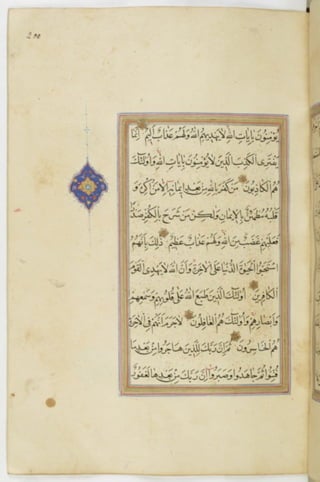 200
يُؤْمِنُونَ بِآيَاتِ اللهِ لَا يَهْدِيهِمُ اللهُ وَلَهُمْ عَذَابٌ أَلِيمٌ إِنَّمَا
يَفْتَرِى الْكَذِبَ الَّذِينَ لَا يُؤْمِنُونَ بِآيَاتِ اللهِ وَأُولَئِكَ
هُمُ الْكَاذِبُونَ مَنْ كَفَرَ بِاللهِ مِنْ بَعْدِ إِيمَانِهِ إِلَّا مَنْ أُكْرِهَ وَ
قَلْبُهُ مُطْمَئِنٌّ بِالْإِيمَانِ وَلَكِنْ مَنْ شَرَحَ بِالْكُفْرِ صَدْرًا
فَعَلَيْهِمْ غَضَبٌ مِنَ اللهِ وَلَهُمْ عَذَابٌ عَظِيمٌ ذَلِكَ بِأَنَّهُمُ
اسْتَحَبُّوا الْحَيَوةَ الدُّنْيَا عَلَى الْآخِرَةِ وَأَنَّ اللهَ لَا يَهْدِى الْقَوْمَ
الْكَافِرِينَ أُولَئِكَ الَّذِينَ طَبَعَ اللهُ عَلَى قُلُوبِهِمْ وَسَمْعِهِمْ
وَأَبْصَارِهِمْ وَأُولَئِكَ هُمُ الْغَافِلُونَ لَا جَرَمَ أَنَّهُمْ فِى الْآخِرَةِ
هُمُ الْخَاسِرُونَ ثُمَّ إِنَّ رَبَّكَ لِلَّذِينَ هَاجَرُوا مِنْ بَعْدِ مَا
فُتِنُوا ثُمَّ جَاهَدُوا وَصَبَرُوا إِنَّ رَبَّكَ مِنْ بَعْدِهَا لَغَفُورٌ